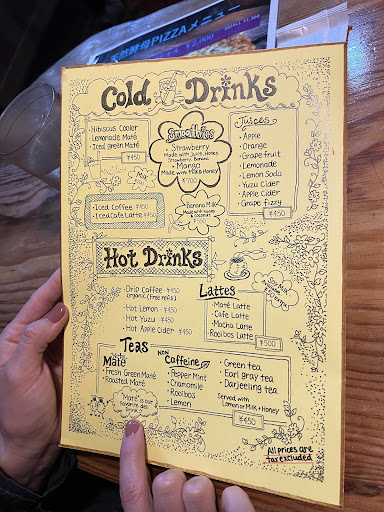 天然酵母PIZZAメニュー
Cold Drinks
・Hibiscus Cooler
・Lemonade Maté
・Iced green Maté
¥450
Smoothies
・Strawberry
Made with Juice, Honey,
Strawberry, Banana
・Mango
Made with Milk & Honey
¥700
Juices
・Apple
・Orange
・Grapefruit
・Lemonade
・Lemon Soda
・Yuzu Cider
・Apple Cider
・Grape Fizzy
¥450
・Iced Coffee ¥450
・Iced Cafe Latte ¥450
Banana Milk
Hot Drinks
・Drip Coffee ¥450
Organic (Free refill)
・Hot Lemon ¥450
・Hot Yuzu ¥450
・Hot Apple Cider ¥450
Lattes
・Maté Latte
・Cafe Latte
・Mocha Latte
Rooibos Latte
¥500
Teas
Maté
・Fresh Green Maté
・Roasted Maté
"Maté" is our
favorite
drink
Non Caffeine
・Pepper Mint
・Chamomile
・Rooibos
・Lemon
・Green tea
・Earl gray tea
・Darjeeling tea
Served with
Lemon or Milk + Honey
¥450
All prices are
tax excluded